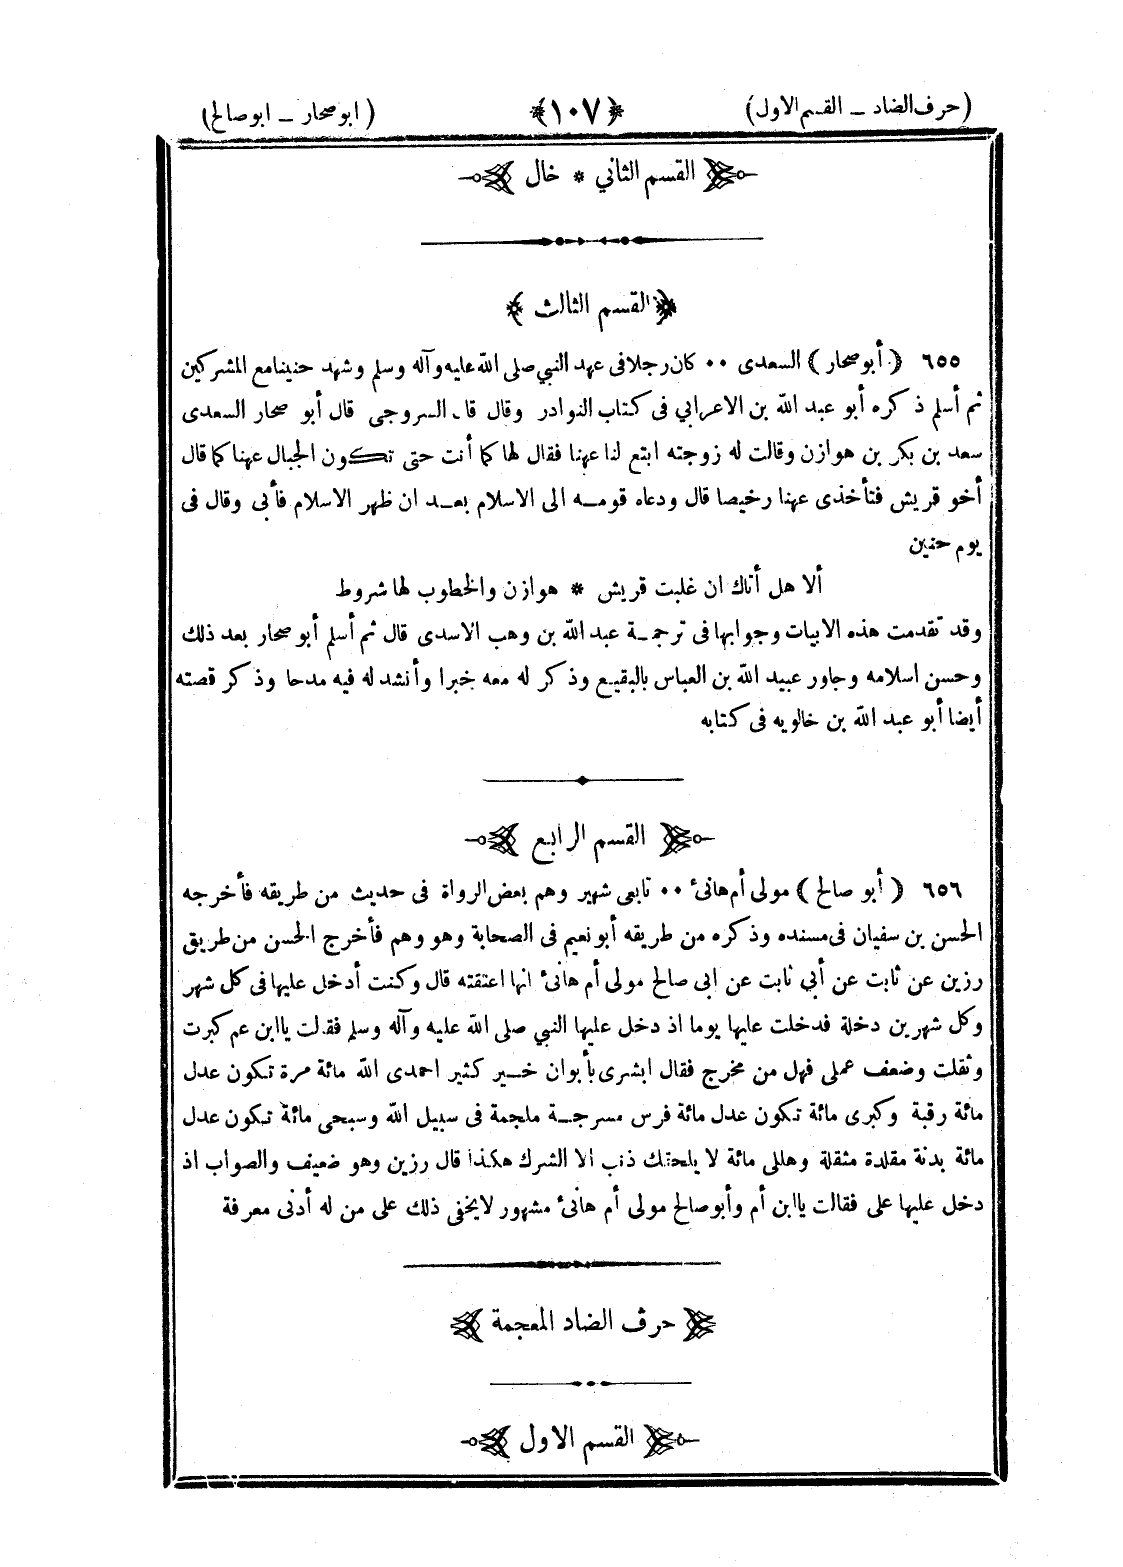 (حرف الضاد ــ القسم الاول) ﴿١٠٧﴾ (ابو صحار ــ ابو صالح)
القسم الثاني * خال
﴿القسم الثالث﴾
٦٥٥ ( أبو صحار ) السعدى ٠٠ كان رجلا فى عهد النبي صلى الله عليه وآله وسلم وشهد حنينا مع المشركين
ثم أسلم ذكره أبو عبد الله بن الاعرابي فى كتاب النوادر وقال قال السروجى قال أبو صحار السعدى
سعد بن بكر بن هوازن وقالت له زوجته ابتع لنا عهنا فقال لها كما أنت حتى تكون الجبال عهنا كما قال
أخو قريش فتأخذى عهنا رخيصا قال ودعاه قومه الى الاسلام بعد ان ظهر الاسلام فأبى وقال فى
يوم حنين
ألا هل أتاك ان غلبت قريش * هوازن والخطوب لها شروط
وقد تقدمت هذه الابيات وجوابها فى ترجمة عبد الله بن وهب الاسدى قال ثم أسلم أبو صحار بعد ذلك
وحسن اسلامه وجاور عبيد الله بن العباس بالبقيع وذكر له معه خبرا وأنشد له فيه مدحا وذكر قصته
أيضا أبو عبد الله بن خالويه فى كتابه
القسم الرابع
٦٥٦ ( أبو صالح ) مولى أم هانئ ٠٠ تابعى شهير وهم بعض الرواة فى حديث من طريقه فأخرجه
الحسن بن سفيان فى مسنده وذكره من طريقه أبو نعيم فى الصحابة وهو وهم فأخرج الحسن من طريق
رزين عن ثابت عن أبي ثابت عن ابى صالح مولى أم هانئ انها اعتقته قال وكنت أدخل عليها فى كل شهر
وكل شهرين دخلة فدخلت عليها يوما اذ دخل عليها النبي صلى الله عليه وآله وسلم فقالت يا ابن عم كبرت
وثقلت وضعف عملى فهل من مخرج فقال ابشرى بأبوان خير كثير احمدى الله مائة مرة تكون عدل
مائة رقبة وكبرى مائة تكون عدل مائة فرس مسرجة ملجمة فى سبيل الله وسبحى مائة تكون عدل
مائة بدنة مقلدة مثقلة وهللى مائة لا يلحقك ذنب الا الشرك هكذا قال رزين وهو ضعيف والصواب اذ
دخل عليها على فقالت يا ابن أم وأبو صالح مولى أم هانئ مشهور لا يخفى ذلك على من له أدنى معرفة
حرف الضاد المعجمة
القسم الاول